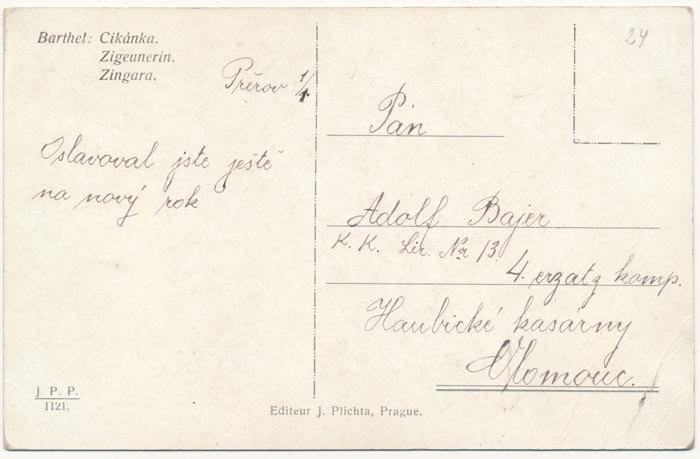 Barthel: Cikánka.
Zigeunerin.
Zingara.
24
Přěrov 1/1
Oslavoval jste ještě
na nový rok
Pán
Adolf Bajer
K. K. Lir. Nr 13.
4. erzatz komp.
Haubické kasárny
Olomouc.
J. P. P.
1121.
Editeur J. Plichta, Prague.